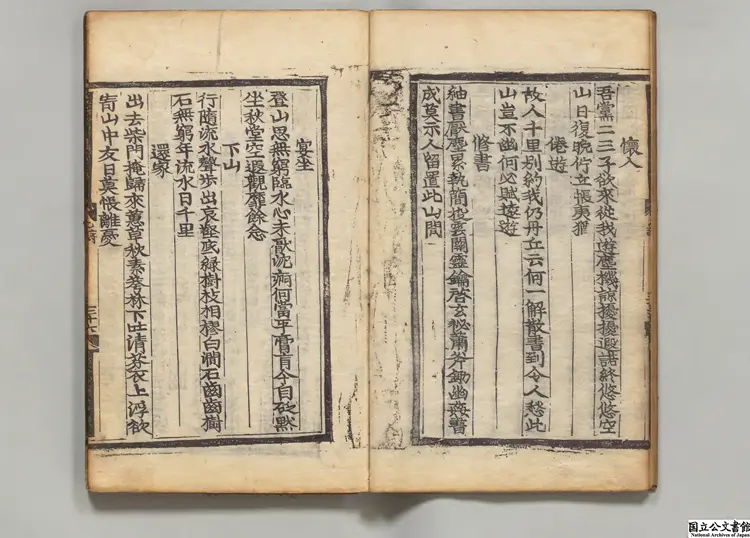 懷人
吾黨二三子欲來從我遊塵機諒擾擾遐諾終悠悠空
山日復晩佇立悵夷猶
倦遊
故人千里別約我仍丹丘云何一解散書到令人愁此
山豈不幽何必賦遠遊
修書
紬書厭塵累執簡投雲關靈鑰啓玄秘蕭斧鋤幽 書
成莫示人留置此山間
宴坐
登山思無窮臨水心未厭沈痾何當平膏肓今自砭默
坐秋堂空遐觀靡餘念
下山
行隨流水聲步出哀壑底綠樹枝相樛白澗石齒齒樹
石無窮年流水日千里
還家
出去柴門掩歸來蕙草秋素 林下吐清芬衣上浮欲
寄山中友日莫悵離憂
国立公文書館
National Archives of Japan